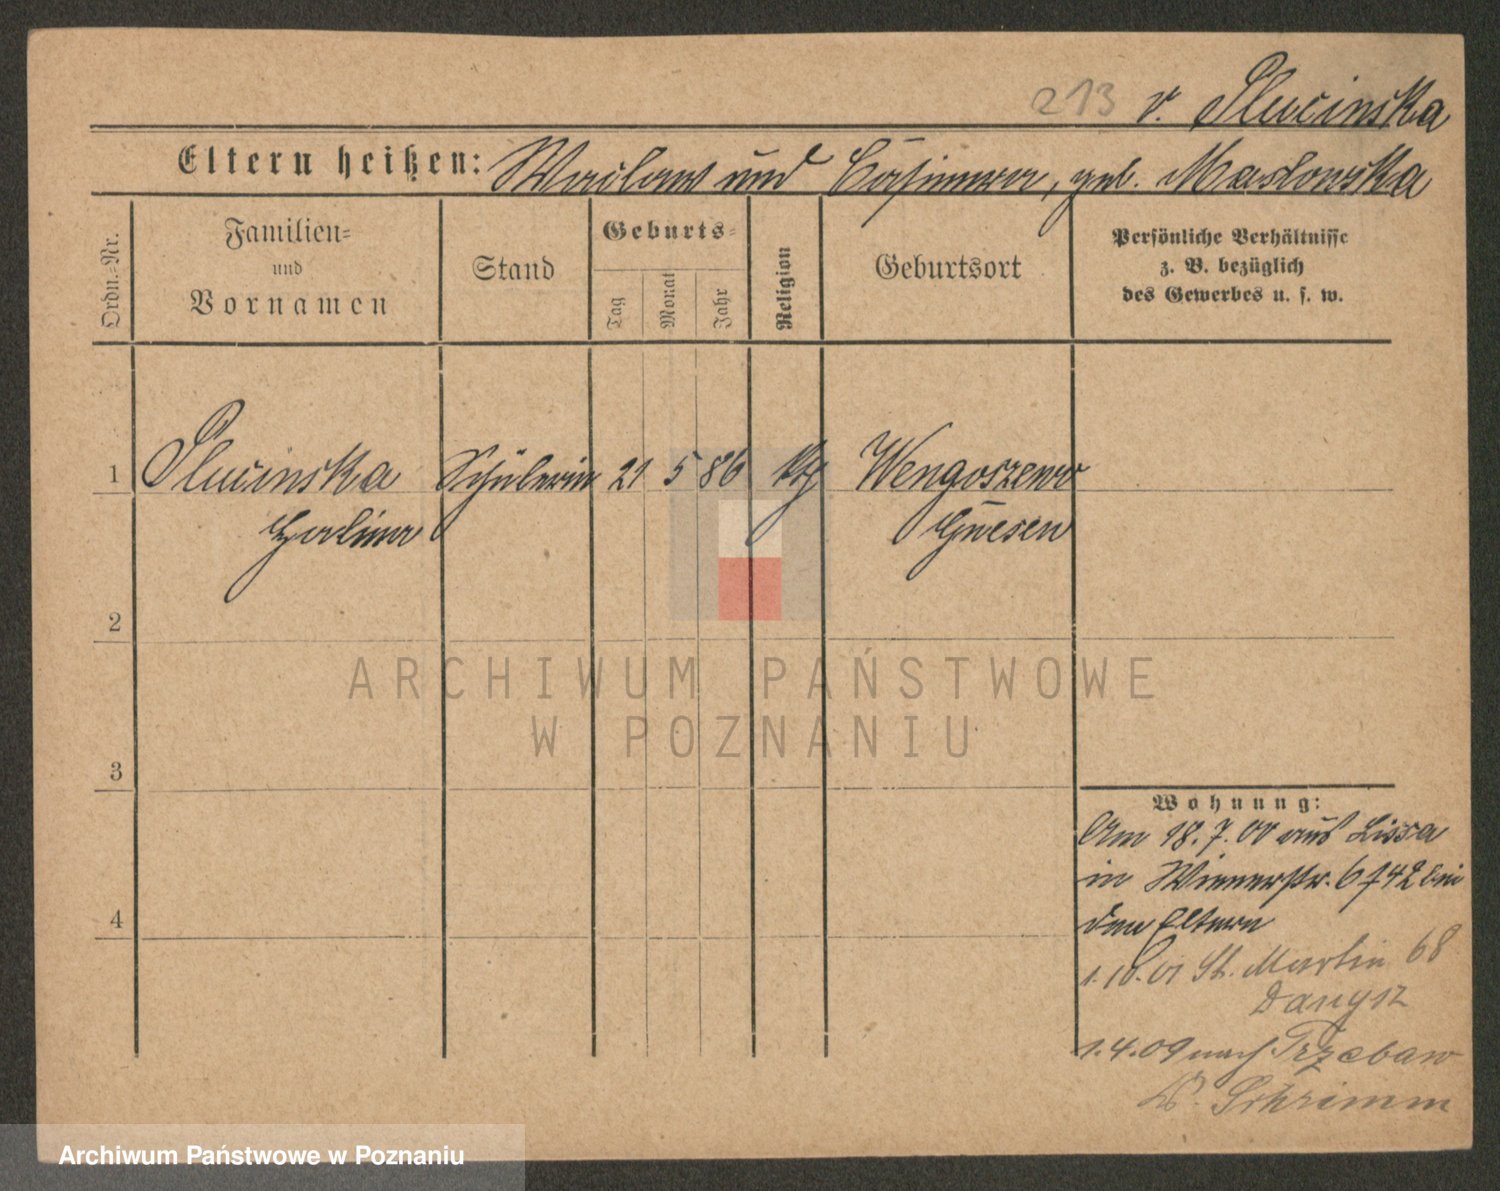 213 v. Plucinska
Eltern heißen: Waclaw und Casimira, geb. Maslowska
Ordn.-Nr.
Familien-
und
Vornamen
Stand
Geburts-
Tag
Monat
Jahr
Religion
Geburtsort
Persönliche Verhältnisse
z. B. bezüglich
des Gewerbes u. s. w.
1 Plucinska Schülerin 21 5 86 kth Wengoszewo
Halina Gnesen
2
ARCHIWUM PAŃSTWOWE
W POZNANIU
3
Wohnung:
Am 18.7.00 aus Lissa
in Wienerstr. 6 742 bei
den Eltern
4
1.10.01 St. Martin 68
Danysz
1.4.09 nach Trzebaw
Kr. Schrimm
Archiwum Państwowe w Poznaniu